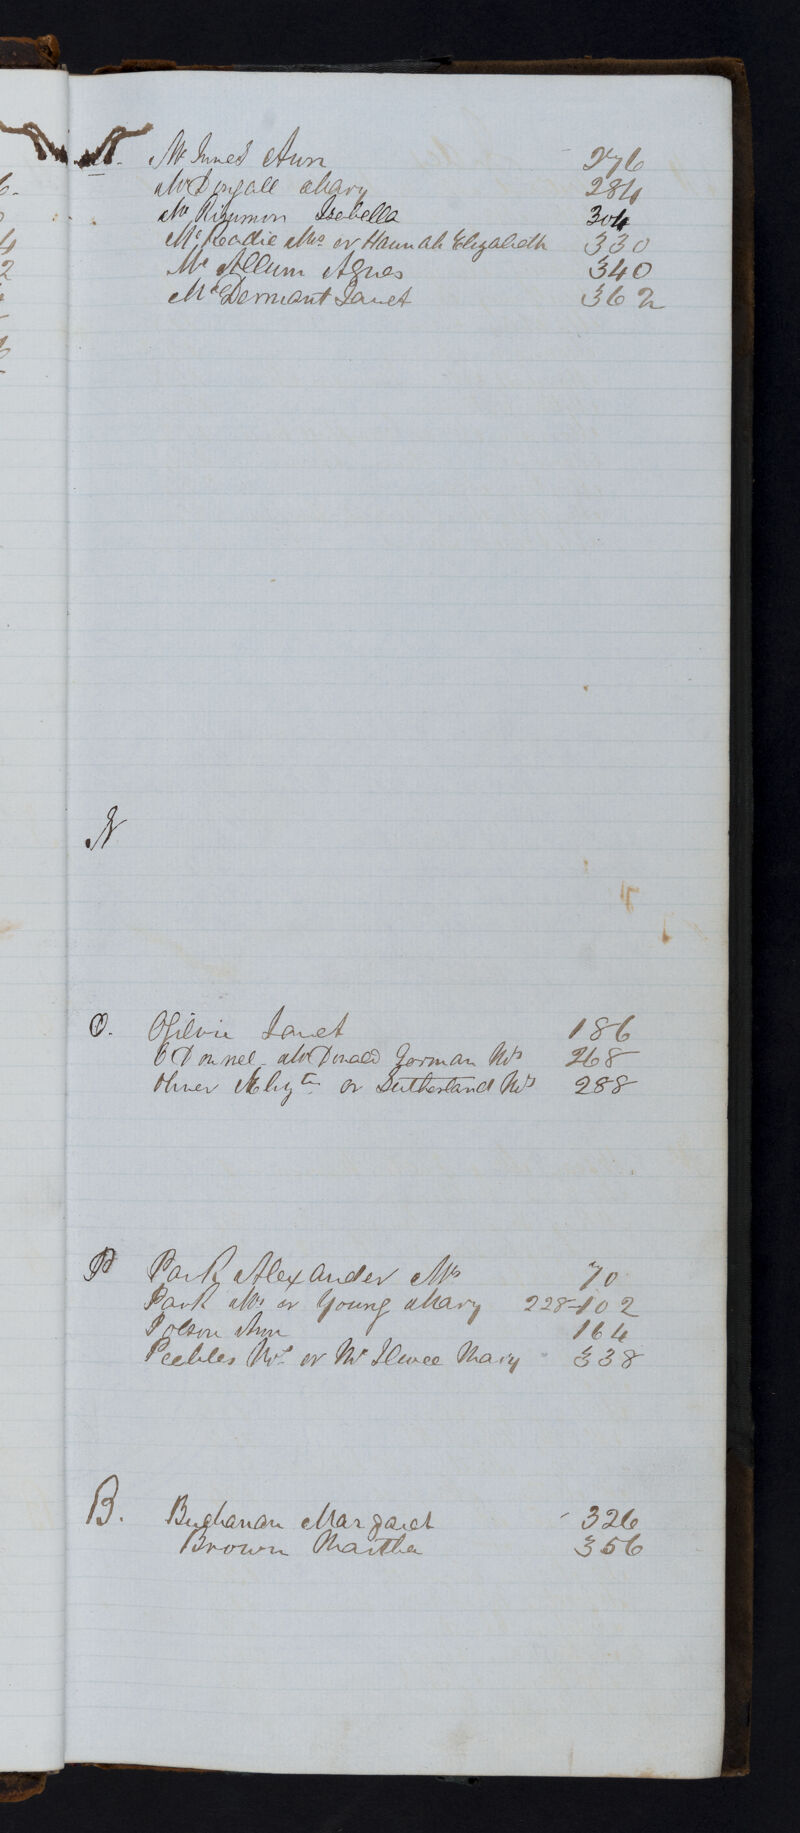 Mc Innes Ann 276
McDougall Mary 284
Mc Kinmon Isebella 304
Mc Readie Mrs or Hannah Elizabeth 330
Mc Allum Agnes 340
McDermant Janet 362
N
O. Ogilvie Janet 186
O'Donnel McDonald Gorman Mrs 268
Oliver or Sutherland Mrs 288
P Park Alexander Mrs 70
Park Mrs or Young Mary 228-102
Polson Ann 164
Peebles Mrs or Mc Ilwee Mary 338
B. Buchanan Margaret 326
Brown Martha 356